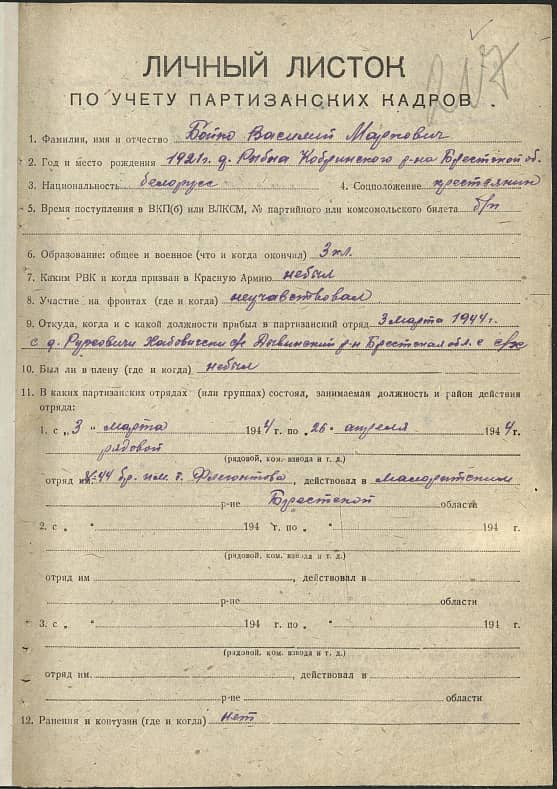 ЛИЧНЫЙ ЛИСТОК
ПО УЧЕТУ ПАРТИЗАНСКИХ КАДРОВ
1. Фамилия, имя и отчество Бойко Василий Маркович
2. Год и место рождения 1921г. д. Рыбна Кобринского р-на Брестской об.
3. Национальность белорусс 4. Соцположение крестянин
5. Время поступления в ВКП(б) или ВЛКСМ, № партийного или комсомольского билета б/п
6. Образование: общее и военное (что и когда окончил) 3 кл.
7. Каким РВК и когда призван в Красную Армию небыл
8. Участие на фронтах (где и когда) неучавствовал
9. Откуда, когда и с какой должности прибыл в партизанский отряд 3 марта 1944 г.
с д. Руховичи с/с Дывинский р-н Брестская обл. с с/х
10. Был ли в плену (где и когда) небыл
11. В каких партизанских отрядах (или группах) состоял, занимаемая должность и район действия
отряда:
1. с „ 3 " марта 1944 г. по „ 26 " апреля 1944 г.
рядовой
(рядовой, ком. взвода и т. д.)
отряд им. 44 бр. им. т. , действовал в Малоритским
р-не Брестской области
2. с „ " 194 г. по „ " 194 г.
(рядовой, ком. взвода и т. д.)
отряд им , действовал в
р-не области
3. с „ " 194 г. по „ " 194 г.
(рядовой, ком. взвода и т. д.)
отряд им. , действовал в
р-не области
12. Ранения и контузии (где и когда) нет